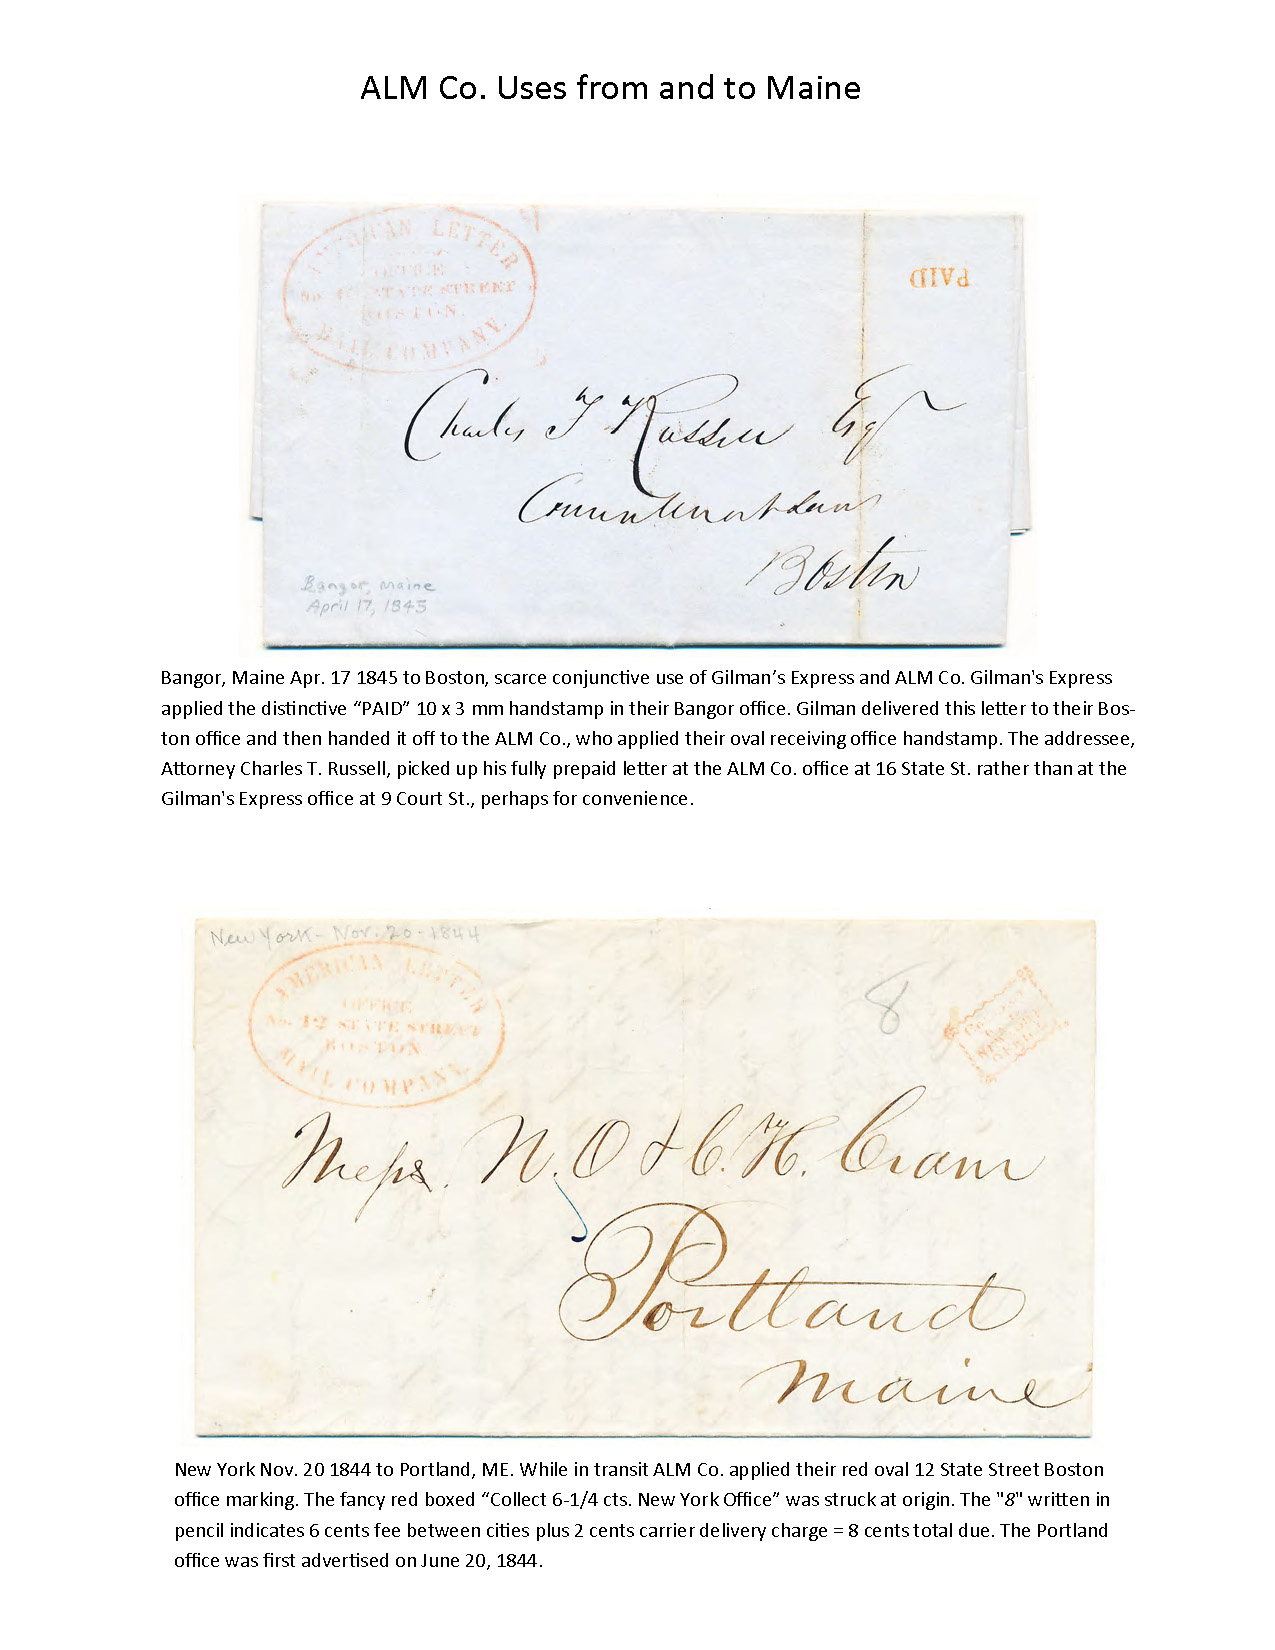 ALM Co. Uses from and to Maine
AMERICAN LETTER
OFFICE
STATE STREET
BOSTON.
MAIL COMPANY.
PAID
Charles T Russell Esq
Counsellor at Law
Boston
Bangor, Maine
April 17, 1845
Bangor, Maine Apr. 17 1845 to Boston, scarce conjunctive use of Gilman’s Express and ALM Co. Gilman's Express
applied the distinctive “PAID” 10 x 3 mm handstamp in their Bangor office. Gilman delivered this letter to their Bos-
ton office and then handed it off to the ALM Co., who applied their oval receiving office handstamp. The addressee,
Attorney Charles T. Russell, picked up his fully prepaid letter at the ALM Co. office at 16 State St. rather than at the
Gilman's Express office at 9 Court St., perhaps for convenience.
New York - Nov. 20 - 1844
AMERICAN LETTER
OFFICE
No. 12 STATE STREET
BOSTON
MAIL COMPANY.
8
NEW YORK
OFFICE
Messrs. N. O & C. H. Cram
Portland
Maine
New York Nov. 20 1844 to Portland, ME. While in transit ALM Co. applied their red oval 12 State Street Boston
office marking. The fancy red boxed “Collect 6-1/4 cts. New York Office” was struck at origin. The "8" written in
pencil indicates 6 cents fee between cities plus 2 cents carrier delivery charge = 8 cents total due. The Portland
office was first advertised on June 20, 1844.